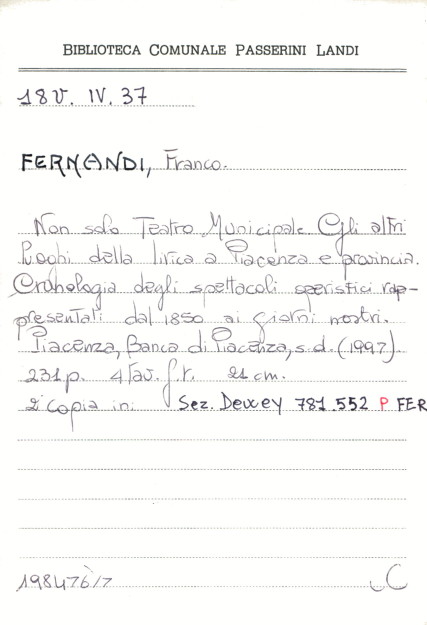 BIBLIOTECA COMUNALE PASSERINI LANDI
18 V. IV. 37
FERNANDI, Franco.
Non solo Teatro Municipale. Gli altri
luoghi della lirica a Piacenza e provincia.
Cronologia degli spettacoli operistici rap-
presentati dal 1850 ai giorni nostri.
Piacenza, Banca di Piacenza, s.d. (1997).
231 p. 4 tav. f.t. 21 cm.
2ª copia in: Sez. Dewey 781.552 P FER
198476/7 C